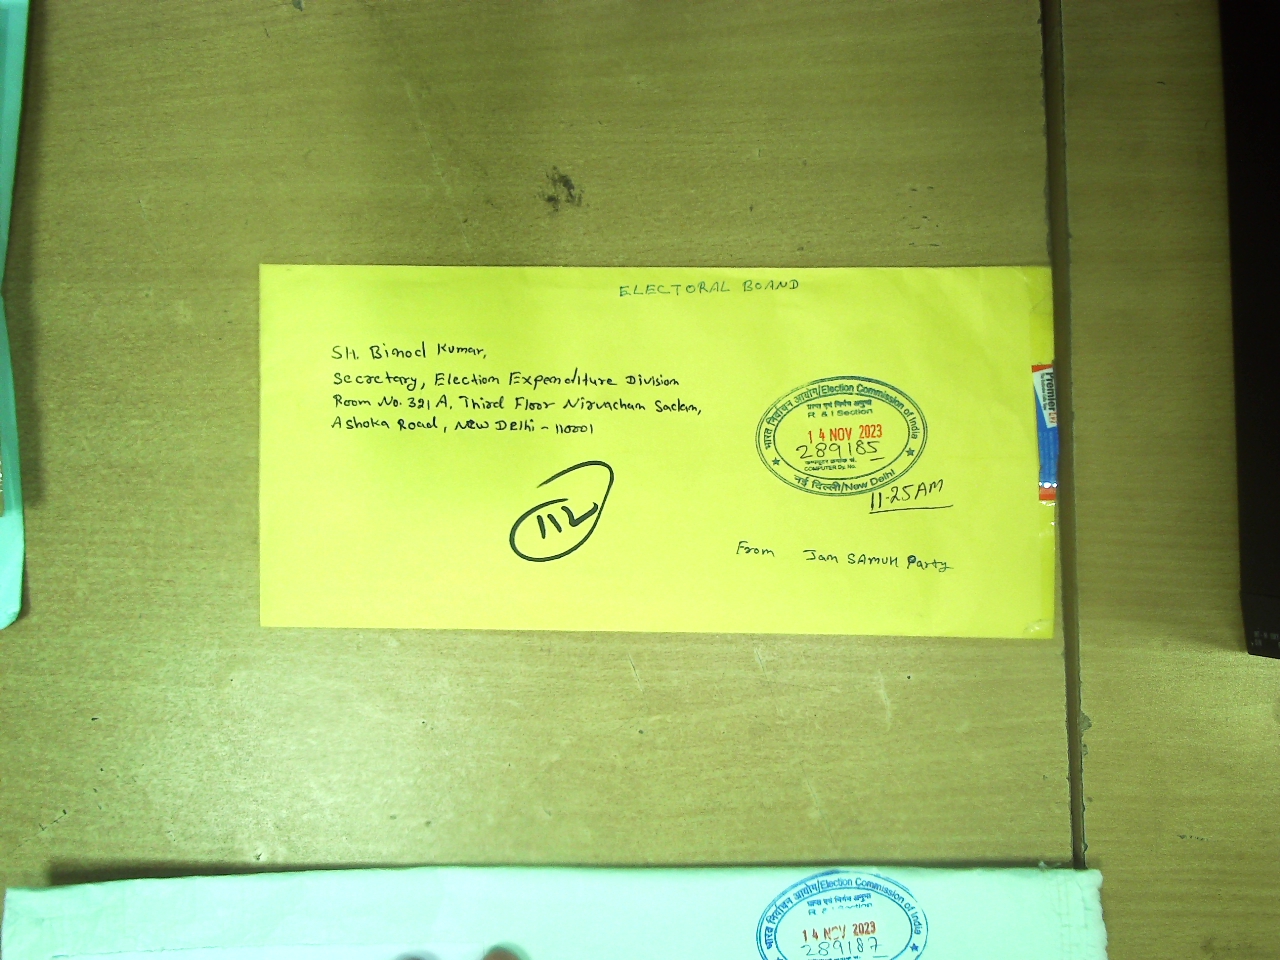 ELECTORAL BOAND
SH. Binod Kumar,
Secretary, Election Expenditure Division
Room No. 321 A, Third Floor Nirvacham Sadan,
Ashoka Road, New Delhi - 110001
भारत निर्वाचन आयोग/Election Commission of India
प्राप्त एवं निर्गम अनुभाग
R & I Section
14 NOV 2023
289185
COMPUTER Dy. No.
नई दिल्ली/New Delhi
11-25 AM
112
From Jan SAMUH Party
Premier
भारत निर्वाचन आयोग/Election Commission of India
प्राप्त एवं निर्गम अनुभाग
R & I Section
14 NOV 2023
289187